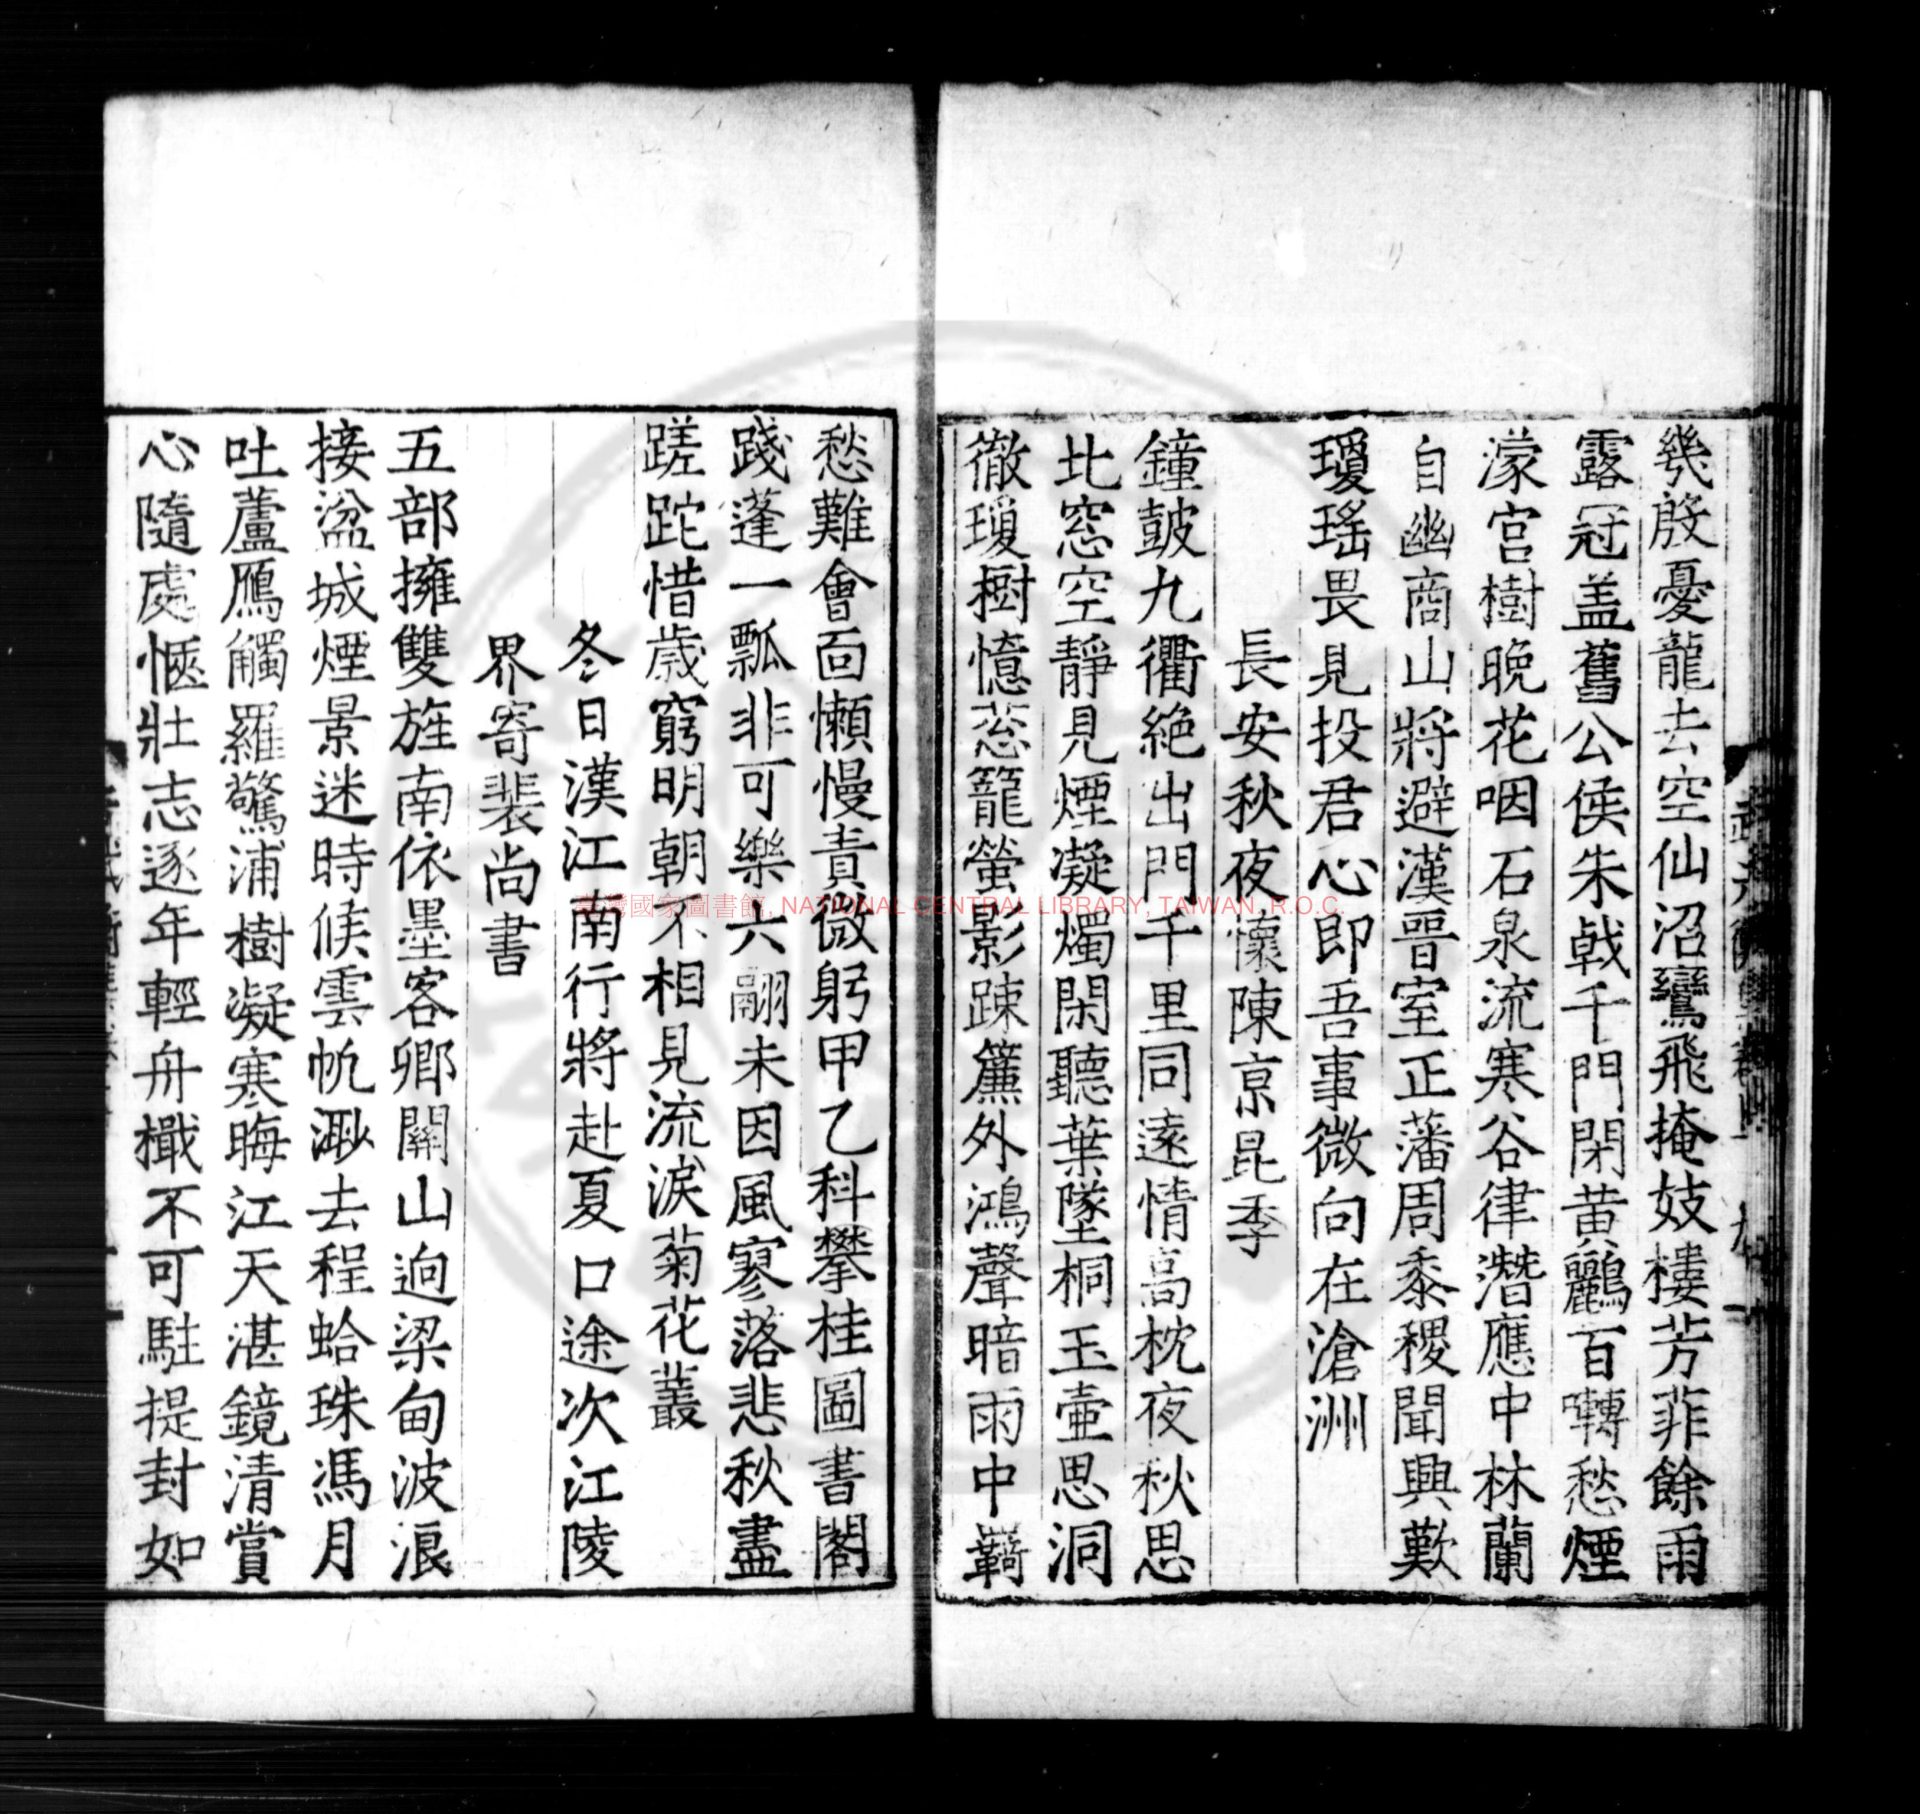 幾殷憂龍去空仙沼鸞飛掩妓樓芳菲餘雨
露冠盖舊公侯朱戟千門閉黄鸝百囀愁煙
濛宫樹晚花咽石泉流寒谷律潛應中林蘭
自幽商山將避漢晉室正藩周黍稷聞興歎
瓊瑤畏見投君心即吾事微向在滄洲
長安秋夜懷陳京昆季
鐘皷九衢絶出門千里同遠情高枕夜秋思
北窓空靜見煙凝燭閑聽葉墜桐玉壷思洞
徹瓊樹憶蔥籠螢影踈簾外鴻聲暗雨中羇
愁難會面懶慢責微躬甲乙科攀桂圖書閣
踐蓬一瓢非可樂六翮未因風寥落悲秋盡
蹉跎惜歲窮明朝不相見流淚菊花叢
冬日漢江南行將赴夏口途次江陵
界寄裴尚書
五部擁雙旌南依墨客卿關山逈梁甸波浪
接湓城煙景迷時候雲帆渺去程蛤珠馮月
吐蘆鴈觸羅驚浦樹凝寒晦江天湛鏡清賞
心隨處愜壯志逐年輕舟檝不可駐提封如
臺灣國家圖書館, NATIONAL CENTRAL LIBRARY, TAIWAN, R.O.C.